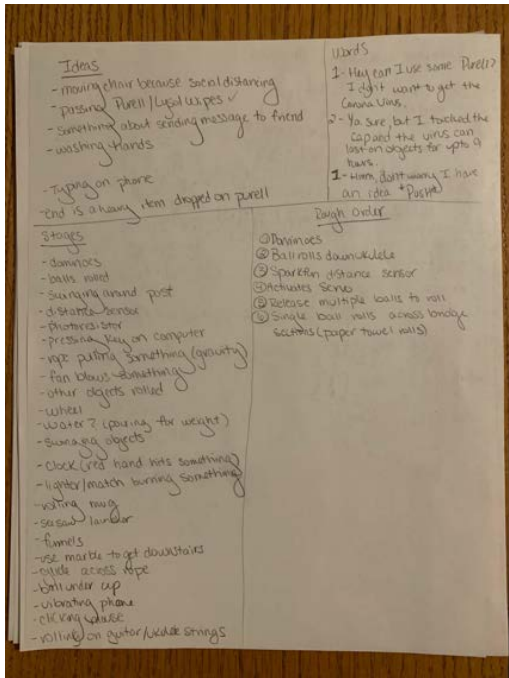 Ideas
- moving chair because social distancing
- passing Purell/Lysol wipes ✓
- something about sending message to friend
- washing hands
- Typing on phone
- end is a heavy item dropped on purell
Words
1 - Hey can I use some Purell?
I don't want to get the
Corona Virus.
2 - Ya sure, but I touched the
cap and the virus can
last on objects for up to 9
hours.
1 - Hmm, don't worry I have
an idea
Stages
- dominoes
- balls rolled
- swinging around post
- distance sensor
- photoresistor
- pressing key on computer
- rope pulling something (gravity)
- fan blows something
- other objects rolled
- wheel
- water? (pouring for weight)
- swinging objects
- clock (red hand hits something)
- lighter/match burning something
- rolling mug
- seesaw
- funnels
- use marble to get downstairs
- across rope
- ball under cup
- vibrating phone
- clicking mouse
- rolling on guitar/ukulele strings
Rough Order
① Dominoes
② Ball rolls down ukulele
③ Sparkfun distance sensor
④ Activates Servo
⑤ Release multiple balls to roll
⑥ Single ball rolls across bridge
sections (paper towel rolls)